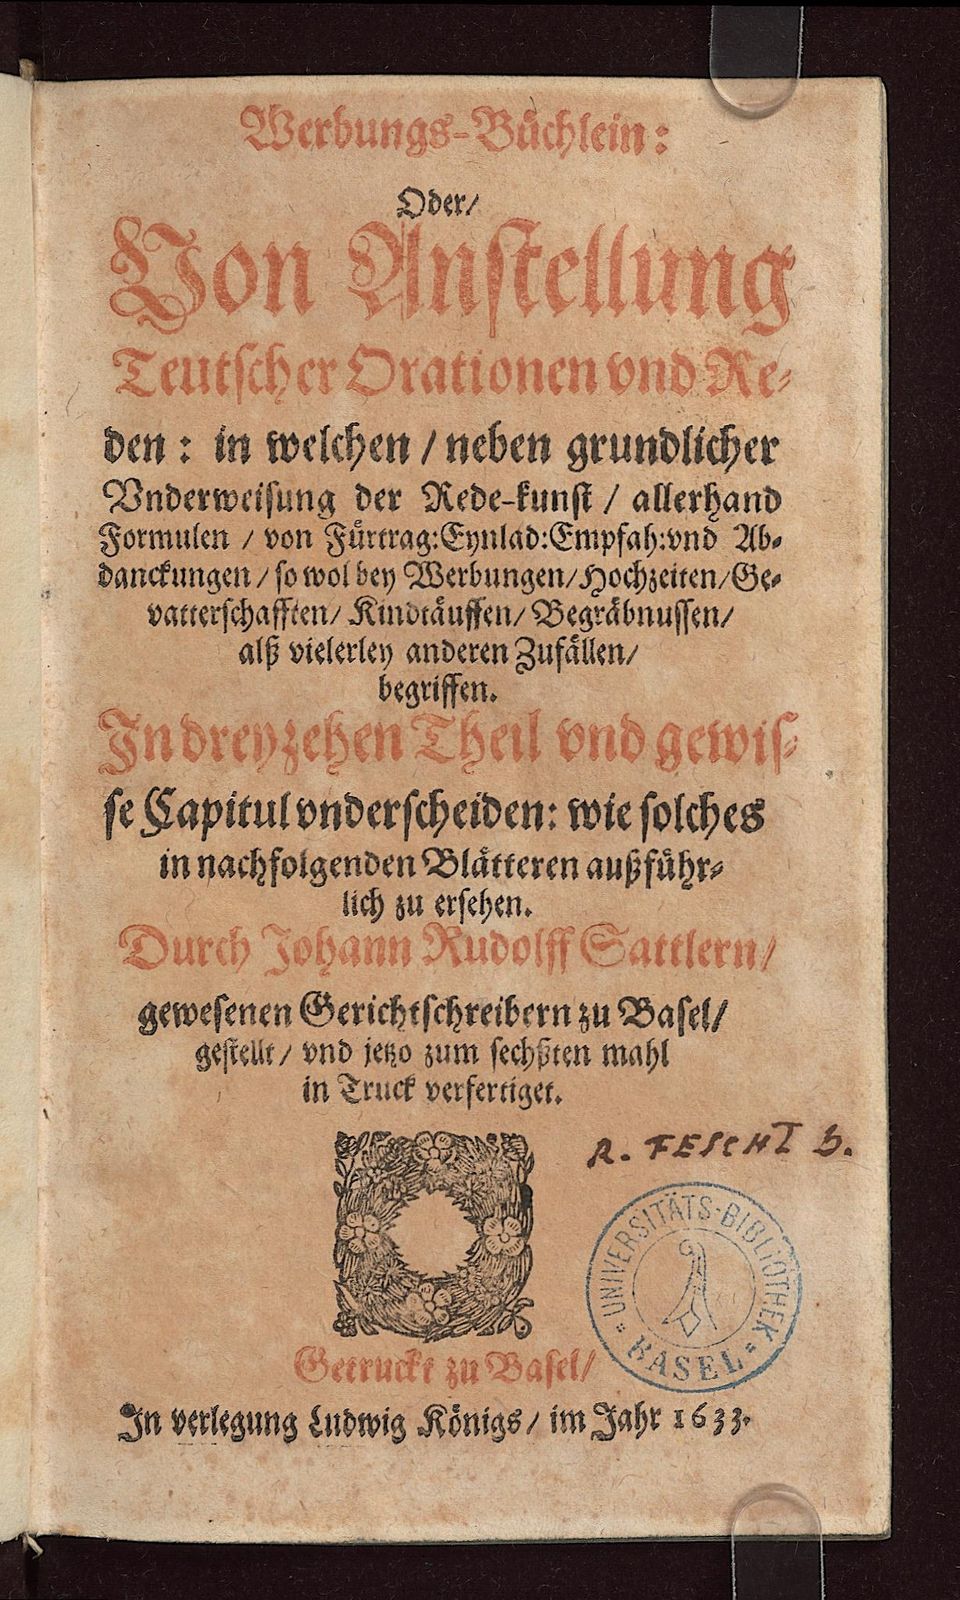 Werbungs-Bůchlein:
Oder/
Von Anstellung
Teutscher Orationen vnd Re-
den: in welchen / neben grundlicher
Vnderweisung der Rede-kunst / allerhand
Formulen / von Fůrtrag: Eynlad: Empfah: vnd Ab-
danckungen / so wol bey Werbungen / Hochzeiten / Ge-
vatterschafften / Kindtäuffen / Begräbnussen /
alß vielerley anderen Zufällen /
begriffen.
In dreyzehen Theil vnd gewis-
se Capitul vnderscheiden: wie solches
in nachfolgenden Blätteren außführ-
lich zu ersehen.
Durch Johann Rudolff Sattlern /
gewesenen Gerichtschreibern zu Basel /
gestellt / vnd jetzo zum sechßten mahl
in Truck verfertiget.
R. FESCHI B.
UNIVERSITÄTS-BIBLIOTHEK
BASEL
Getruckt zu Basel /
In verlegung Ludwig Königs / im Jahr 1633.